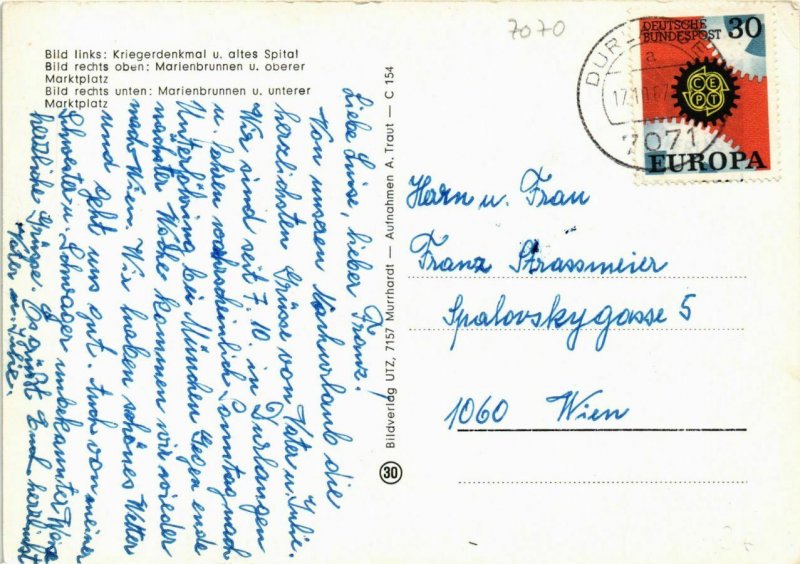 7070
Bild links: Kriegerdenkmal u. altes Spital
Bild rechts oben: Marienbrunnen u. oberer
Marktplatz
Bild rechts unten: Marienbrunnen u. unterer
Marktplatz
Liebe Luise, lieber Franz!
Von unseren Nachurlaub die
herzlichsten Grüsse von Vater u. Julie.
Wir sind seit 7.10. in Durlangen
u. fahren wahrscheinlich Sonntag nach
Unterföhring bei München Gegen ende
nächster Woche kommen wir wieder
nach Wien. Wir haben schönes Wetter
und geht uns gut. Auch von meiner
Schwester u. Schwager unbekannter Weise
herzliche Grüsse. Es grüßt Euch herzlichst
Vater u. Julie.
Bildverlag UTZ, 7157 Murrhardt — Aufnahmen A. Traut — C 154
30
DEUTSCHE
BUNDESPOST 30
CEPT
EUROPA
DUR
a
17.10.67
7071
Herrn u. Frau
Franz Strassmeier
Spalovskygasse 5
1060 Wien